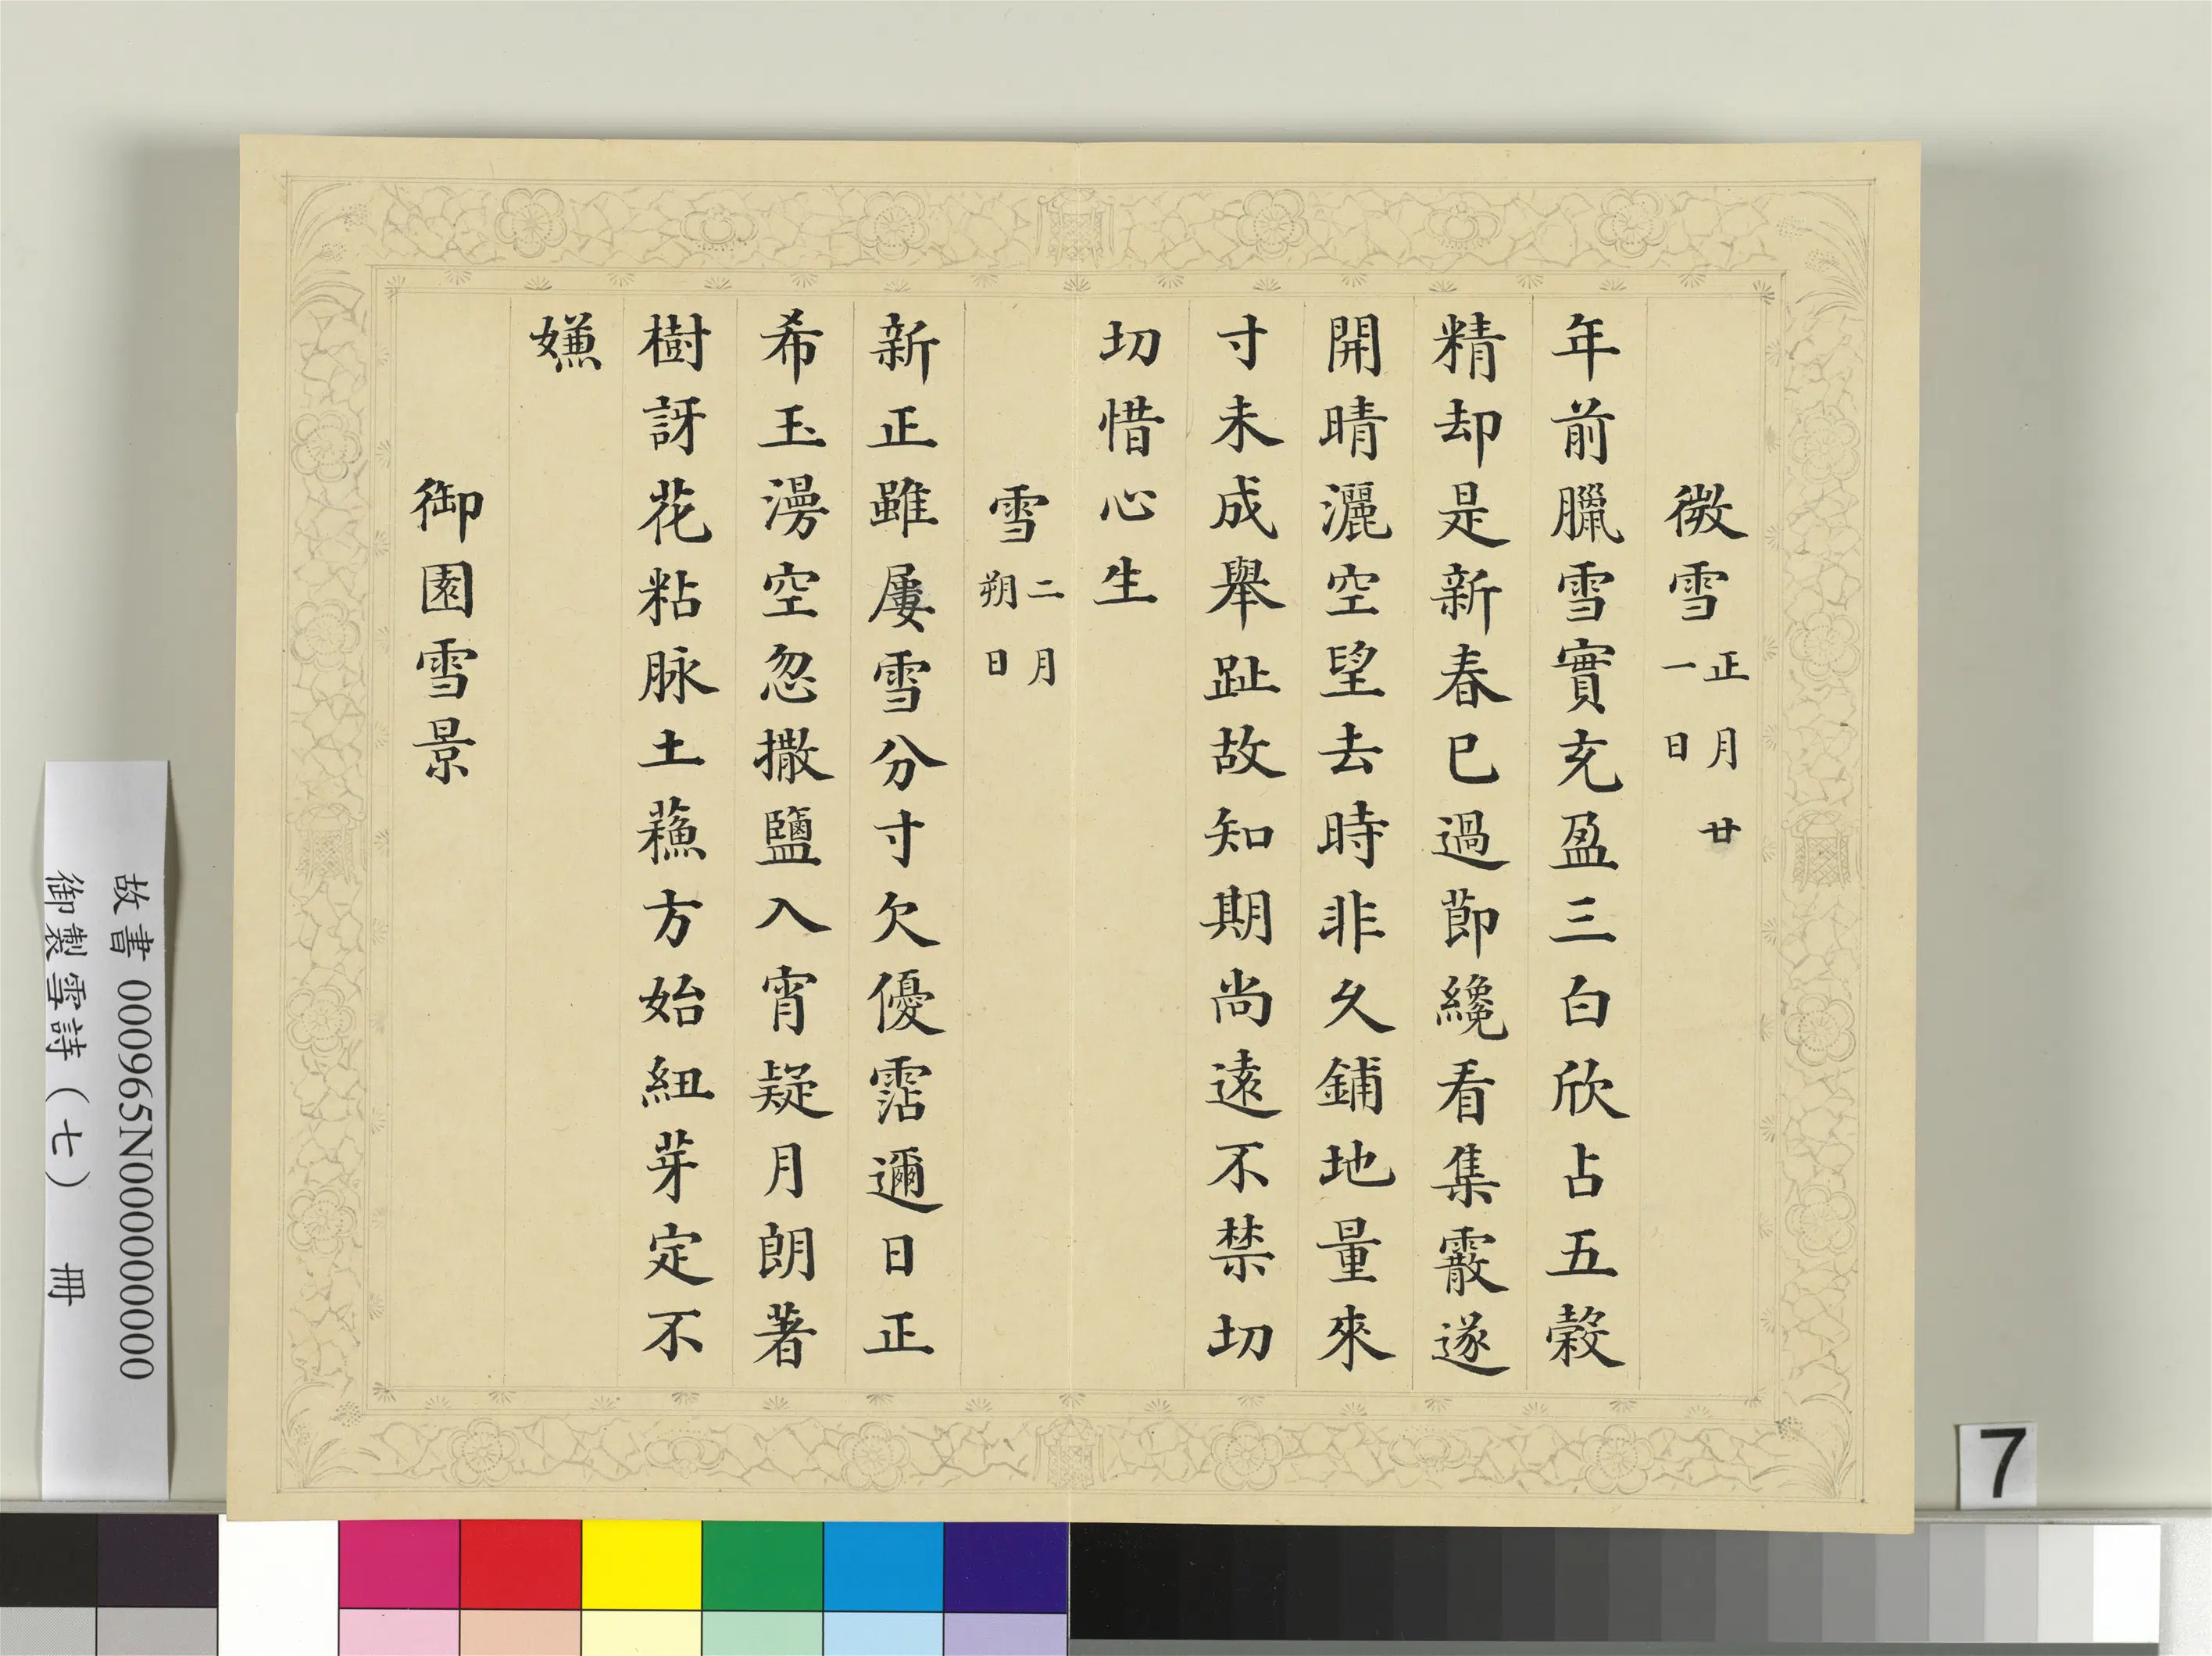 微雪 正月廿一日
年前臘雪實充盈三白欣占五穀
精却是新春已過節纔看集霰遂
開晴灑空望去時非久鋪地量來
寸未成舉趾故知期尚遠不禁切
切惜心生
雪 二月朔日
新正雖屢雪分寸欠優霑邇日正
希玉澷空忽撒鹽入宵疑月朗著
樹訝花粘脉土蘓方始紐芽定不
嫌
御園雪景
故書 000965N000000000
御製雪詩（七） 冊
7